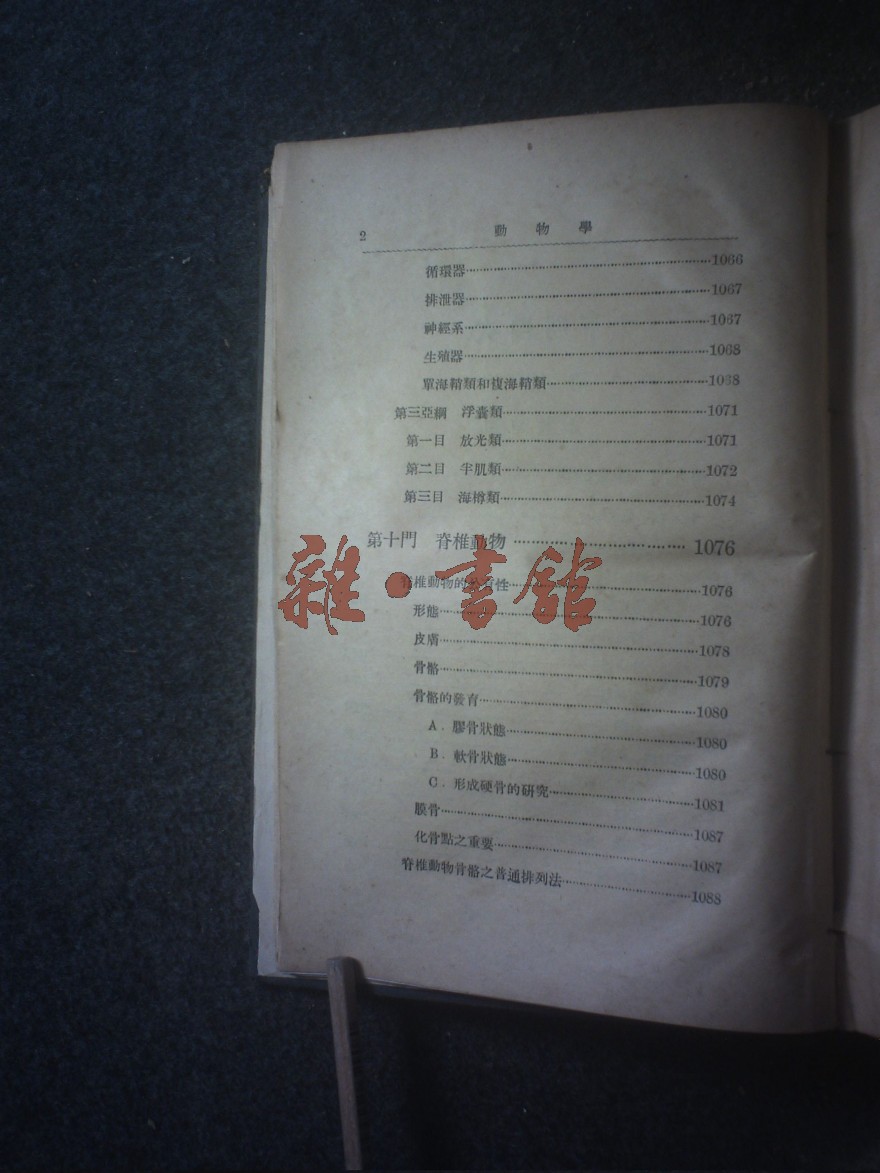 2 動物學
循環器 1066
排泄器 1067
神經系 1067
生殖器 1068
單海鞘類和複海鞘類 1068
第三亞綱 浮囊類 1071
第一目 放光類 1071
第二目 半肌類 1072
第三目 海樽類 1074
第十門 脊椎動物 1076
雜·書館
脊椎動物的 有性 1076
形態 1076
皮膚 1078
骨骼 1079
骨骼的發育 1080
A. 膠骨狀態 1080
B. 軟骨狀態 1080
C. 形成硬骨的研究 1081
膜骨 1087
化骨點之重要 1087
脊椎動物骨骼之普通排列法 1088